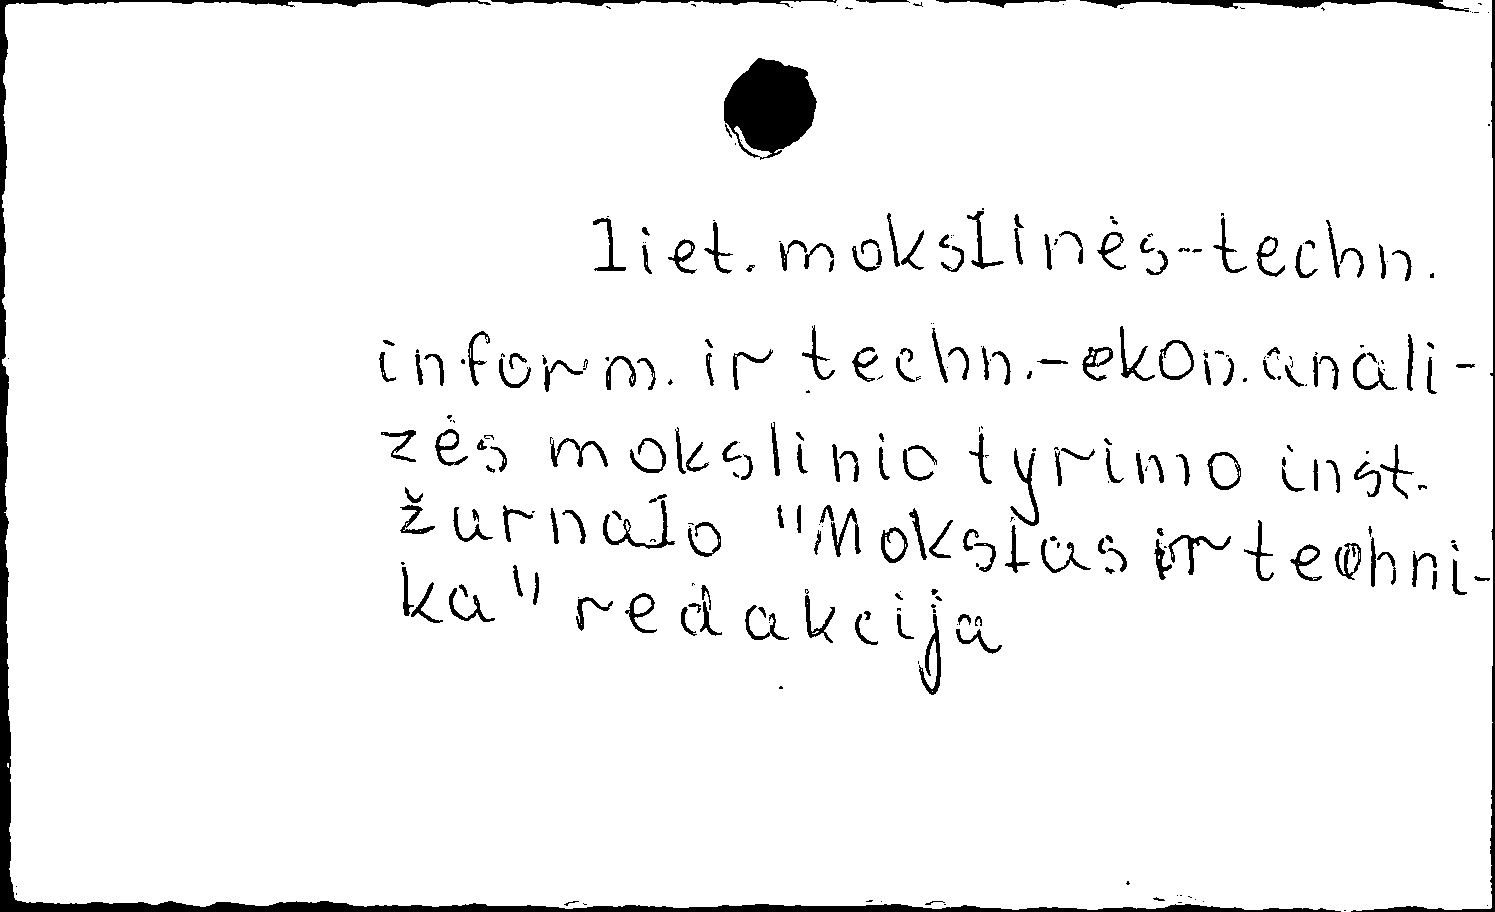 liet. mokslinės-techn.
inform. ir techn.-ekon. anali-
zės mokslinio tyrimo inst.
žurnalo "Mokslas ir techni-
ka" redakcija